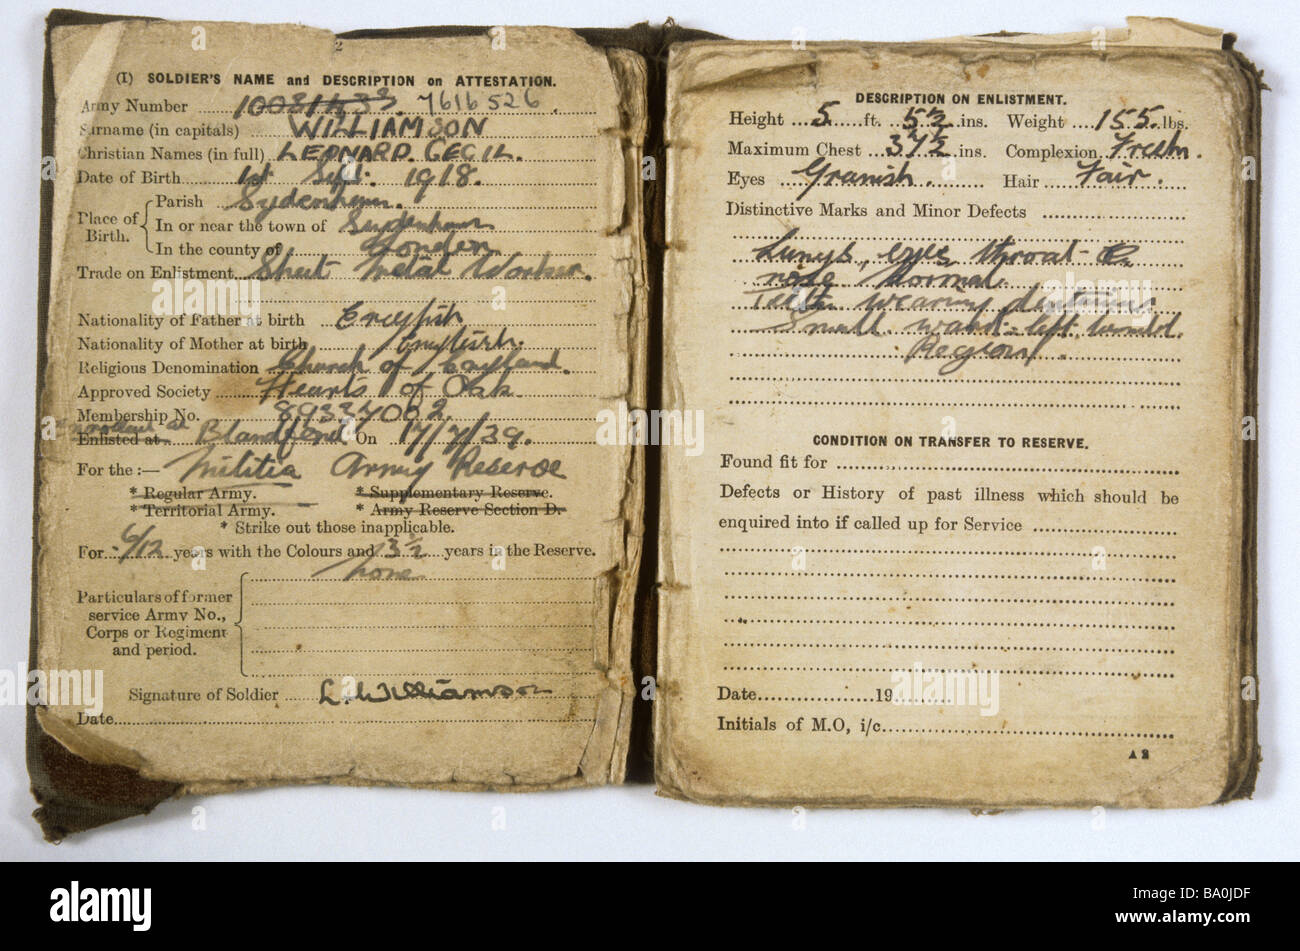 2
(I) SOLDIER'S NAME and DESCRIPTION on ATTESTATION.
Army Number 7616526
Surname (in capitals) WILLIAMSON
Christian Names (in full) LEONARD. CECIL.
Date of Birth 1st Sept. 1918.
Place of Birth. Parish Sydenham.
In or near the town of Sydenham
In the county of London
Trade on Enlistment Sheet Metal Worker.
Nationality of Father at birth English
Nationality of Mother at birth English.
Religious Denomination Church of England.
Approved Society Hearts of Oak
Membership No. 89337002.
Enlisted at Blandford On 17/7/39.
For the :— Militia Army Reserve
* Regular Army. * Supplementary Reserve.
* Territorial Army. * Army Reserve Section D.
* Strike out those inapplicable.
For 6/12 years with the Colours and 3½ years in the Reserve.
Particulars of former service Army No., Corps or Regiment and period. None
Signature of Soldier L. Williamson
Date
DESCRIPTION ON ENLISTMENT.
Height 5 ft. 5½ ins. Weight 155 lbs.
Maximum Chest 37½ ins. Complexion Fresh.
Eyes Hair Fair.
Distinctive Marks and Minor Defects
Lungs, eyes throat
nose Normal.
Teeth wearing dentures
Small left
Region.
CONDITION ON TRANSFER TO RESERVE.
Found fit for
Defects or History of past illness which should be
enquired into if called up for Service
Date 19
Initials of M.O, i/c.
A 2
alamy
alamy
Image ID: BA0JDF
www.alamy.com